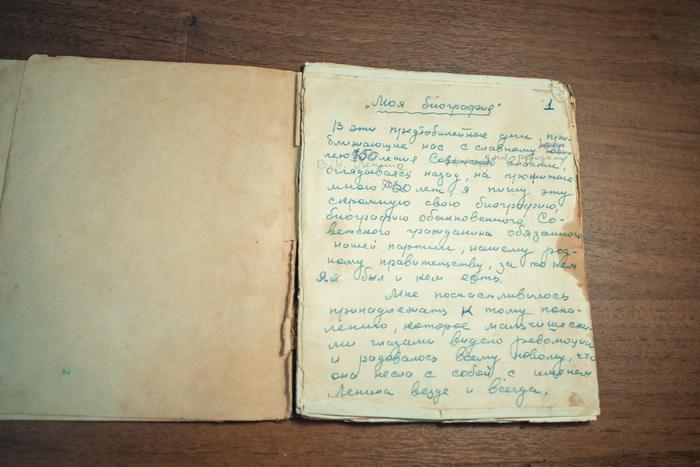 „Моя биография" 1
В эти предюбилейные дни, при-
ближающие нас с славному
летия Советской власти,
В. И. Ленина
оглядываясь назад, на прожитые
мною 60 лет, я пишу эту
скромную свою биографию,
биографию обыкновенного Со-
ветского гражданина обязанного
нашей партии, нашему род-
ному правительству, за то кем
Я был и кем есть.
Мне посчастливилось
принадлежать к тому поко-
лению, которое мальчишески-
ми глазами видело революцию
и радовалось всему новому, что
она несла с собой, с именем
Ленина везде и всегда.